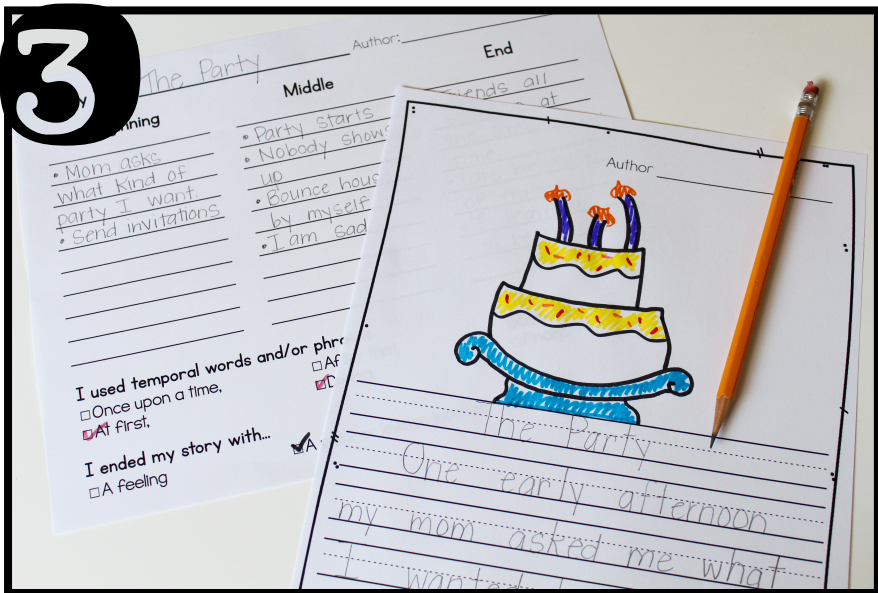 3
The Party
Author:
nning
Middle
End
• Mom asks
what kind of
party I want.
• Send invitations
• Party starts
• Nobody shows
up
• Bounce hous
by myself
• I am sad
iends all
at
I used temporal words and/or phr
Once upon a time,
At first,
Af
I ended my story with...
A feeling
A
Author
The Party
One early afternoon
my mom asked me what
I wanted